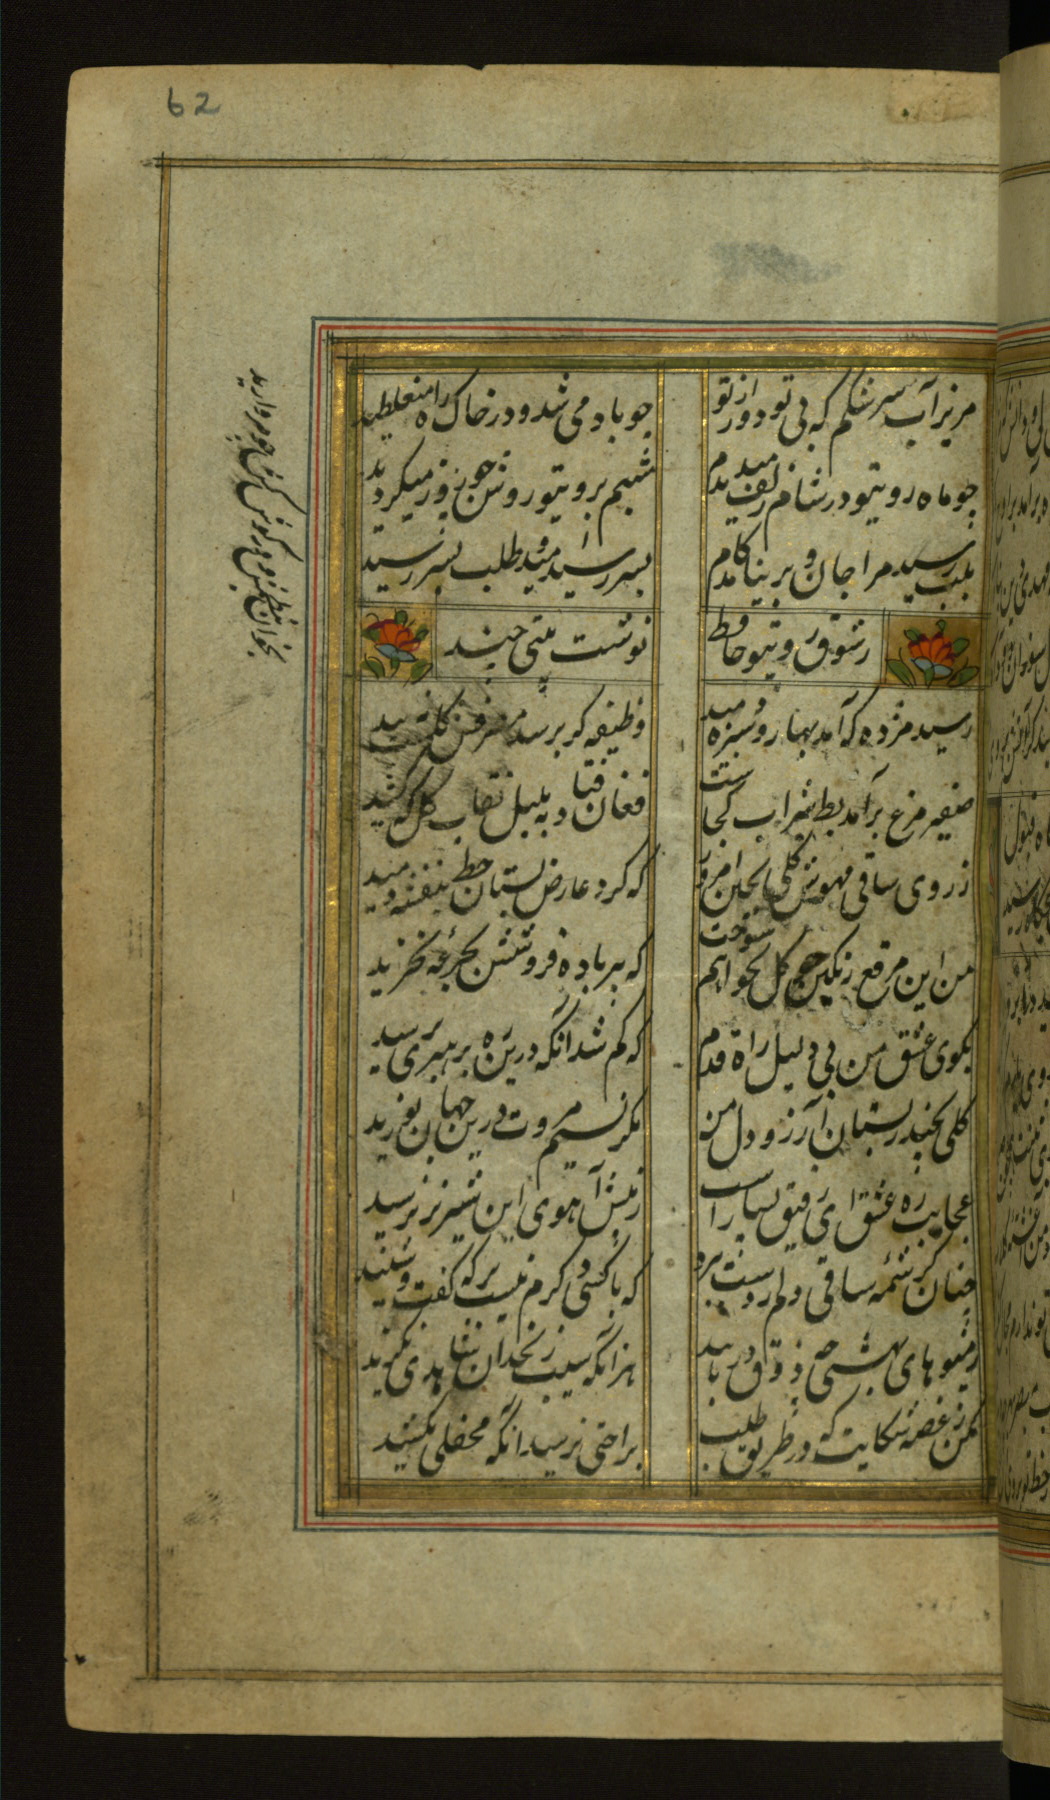 62
مریز آب سرشکم که بی تو دور از تو
چو باد می شد و در خاک راه میغلطید
چو ماه روی تو در شام زلف میدیدم
شبم بروی تو روشن چو روز میگردید
بلب رسید مرا جان و بر نیامد کام
بسر رسید امید و طلب بسر نرسید
ز شوق روی تو حافظ
نوشت بیتی چند
بخوان ز نظمش و در گوش کن چو مروارید
رسید مژده که آمد بهار و سبزه دمید
وظیفه گر برسد مصرفش گلست و نبید
صفیر مرغ برآمد بط شراب کجاست
فغان فتاد به بلبل نقاب گل که کشید
ز روی ساقی مهوش گلی بچین امروز
که گرد عارض بستان خط بنفشه دمید
من این مرقع رنگین چو گل بخواهم سوخت
که پیر باده فروشش بجرعه نخرید
بکوی عشق منه بی دلیل راه قدم
که گم شد آنکه درین ره برهبری نرسید
گلی نچید ز بستان آرزو دل من
مگر نسیم مروت درین جهان نوزید
عجایب ره عشق ای رفیق بسیارست
ز پیش آهوی این شیر نر رسید
چنان کرشمه ساقی دلم ز دست ببرد
که با کسی دگرم نیست برگ گفت و شنید
ز میوهای بهشتی چه ذوق دریابد
هر آنکه سیب زنخدان شاهدی نگزید
مکن ز غصه شکایت که در طریق طلب
براحتی نرسید آنکه محنتی نکشید